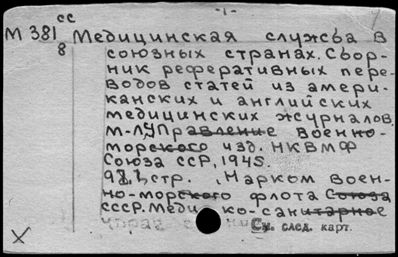 -1-
сс
М 381 Медицинская служба в
8 союзных странах. Сбор-
ник реферативных пере-
водов статей из амери-
канских и английских
медицинских журналов.
М.-Л. Управление военно-
морского изд. НКВМФ
Союза ССР, 1945.
стр. Нарком Воен-
но-морского флота Союза
СССР. Меди ко-санитарное
См. след. карт.